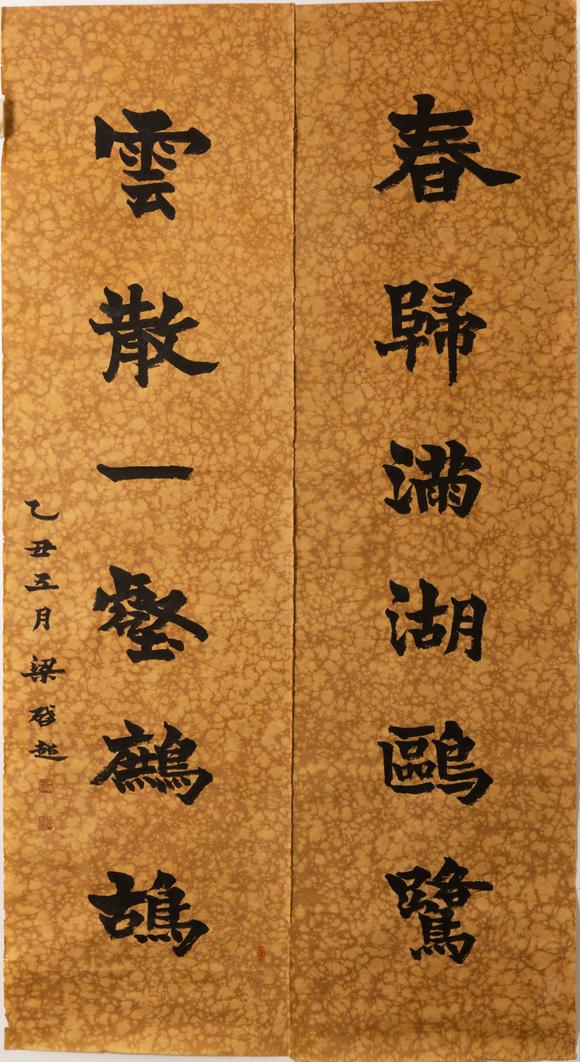 春歸滿湖鷗鷺
雲散一壑鷓鴣
乙丑五月梁啓超